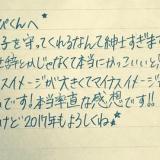 ぴくんへ
子を守ってくれるなんて紳士すぎます
世辞とかじゃなくて本当にかっこいいと!
スイメージが大きくてマイナスイメージ
です!本当率直な感想です!!
けど2017年もよろしくね